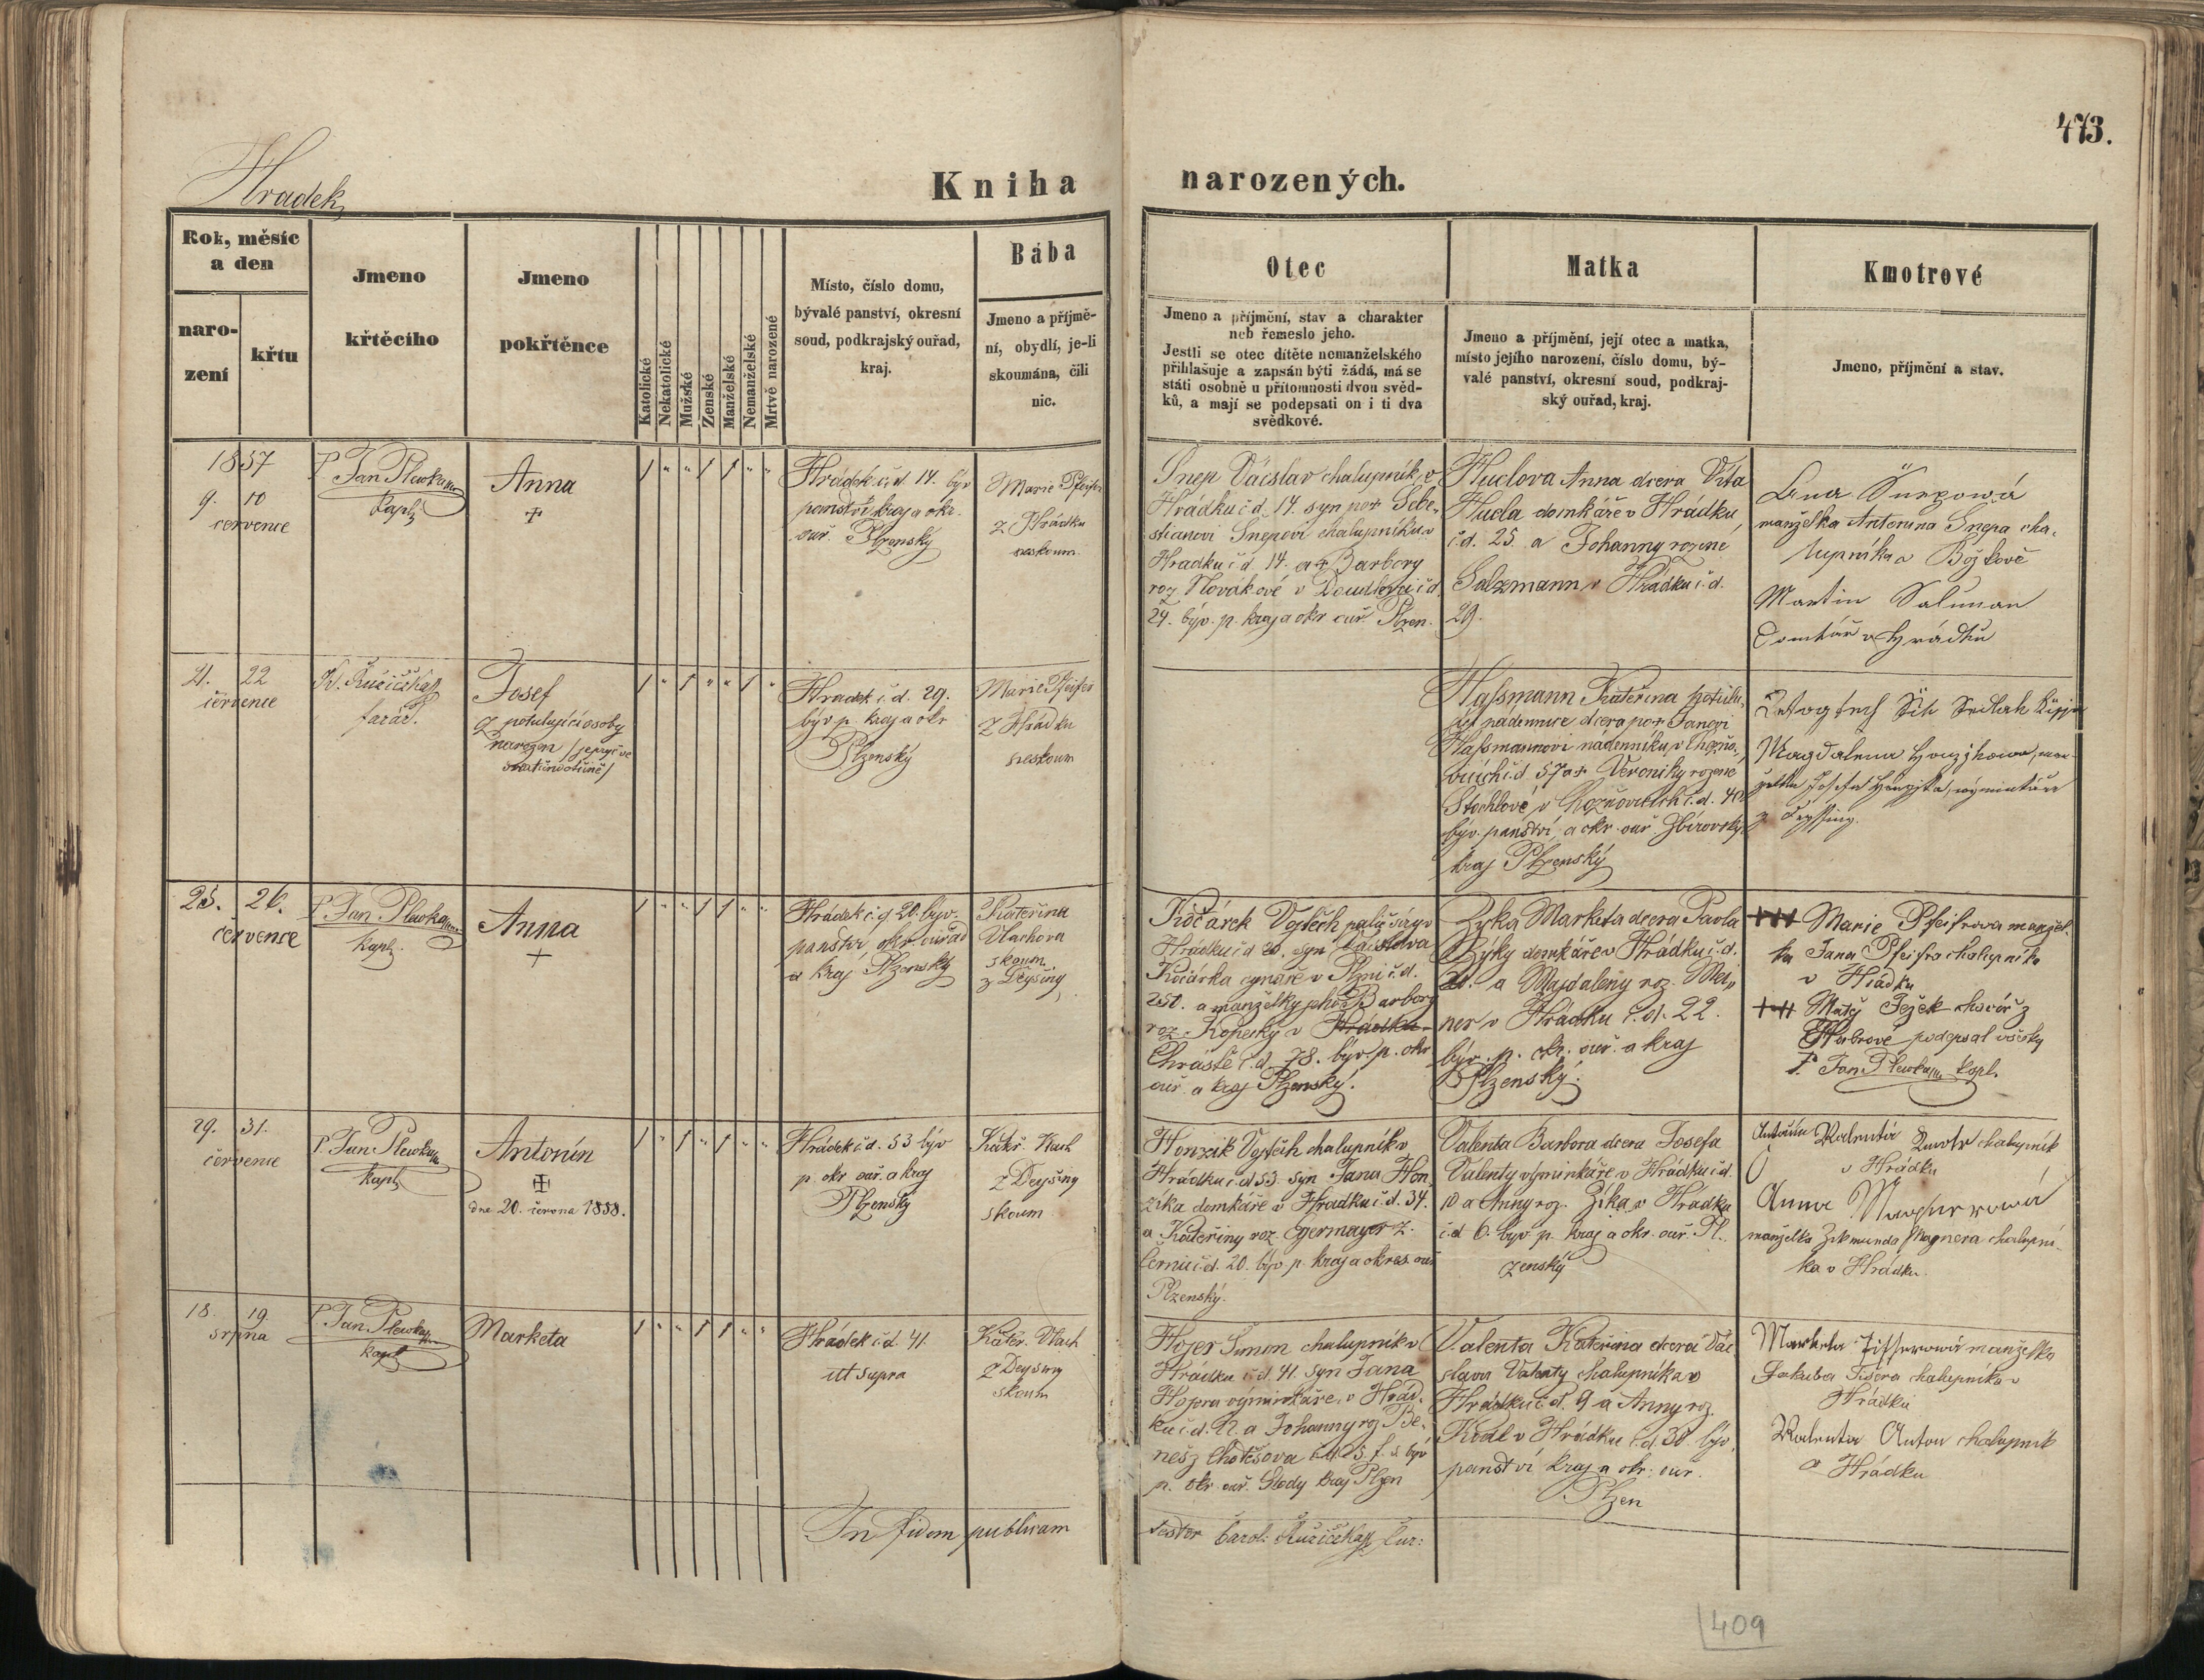 473.
Hradek
Kniha narozených.
Rok, měsíc
a den
naro-
zení
křtu
Jmeno
křtěcího
Jmeno
pokřtěnce
Katolické
Nekatolické
Mužské
Ženské
Manželské
Nemanželské
Mrtvě narozené
Místo, číslo domu,
bývalé panství, okresní
soud, podkrajský ouřad,
kraj.
Bába
Jmeno a příjmě-
ní, obydlí, je-li
skoumána, čili
nic.
Otec
Jmeno a příjmění, stav a charakter
neb řemeslo jeho.
Jestli se otec dítěte nemanželského
přihlašuje a zapsán býti žádá, má se
státi osobně u přítomnosti dvou svěd-
ků, a mají se podepsati on i ti dva
svědkové.
Matka
Jmeno a příjmění, její otec a matka,
místo jejího narození, číslo domu, bý-
valé panství, okresní soud, podkraj-
ský ouřad, kraj.
Kmotrové
Jmeno, příjmění a stav.
1857
9. 10
července
P. Jan Plewka
Kapl.
Anna
+
1 " " 1 1 " "
Hrádek č.d. 14. býv
panství kraj a okr.
ouř. Plzenský
Marie Pfeifer
z Hrádku
neskoum.
Snep Václav chalupník v
Hrádku č d. 14. syn po+ Sebe-
stianovi Snepovi chalupníku v
Hradku č d 14. a + Barbory
roz Novákové v Doudlevci č d
24. býv. p. kraj a okr ouř. Plzen.
Huclova Anna dcera Víta
Hucla domkáře v Hrádku
č.d. 25. a Johanny rozené
Salzmann v Hrádku č.d.
29.
manželka Antonína Snepa cha-
lupníka v Božkově
Martin Salzman
Domkář v Hrádku
21. 22
července
K. Růžička
farář.
Josef
z potulující osoby
narozen
1 " 1 " " 1 "
Hradek č. d. 29.
býv p. kraj a okr
Plzenský
Marie Pfeifer
z Hrádku
neskoum
Hassmann Kateřina potulu-
jící nádennice dcera po+ Janovi
Hassmannovi nádenníku v
č.d. 57 a + Veroniky rozené
č.d. 40
býv. panství a okr. ouř. Zbirovský
kraj Plzenský
Magdalena
25. 26.
července
P. Jan Plewka
Kapl.
Anna
+
1 " " 1 1 " "
Hrádek č.d. 20. býv.
panství okr. ouřad
a kraj Plzenský
Kateřina
Vlachova
skoum.
z Dejšiny
Kočárek Vojtěch
Hrádku č d 20. syn Václava
Kočárka v Plzni č.d.
250. a manželky jeho Barbory
roz. Kopecký v Hrádku
Chrástě č.d. 78. býv p. okr
ouř. a kraj Plzenský.
Zyka Marketa dcera Pavla
Zýky domkáře v Hrádku č.d.
20. a Majdaleny roz. Mei-
ner v Hrádku č. d. 22.
býv. p. okr. ouř. a kraj
Plzenský.
+++ Marie Pfeifrova manžel-
ka Jana Pfeifra chalupníka
v Hrádku
+++ Matěj Ježek z
podepsal všecky
P. Jan Plewka kapl.
29. 31.
července
P. Jan Plewka
Kapl
Antonín
+
dne 20. června 1858.
1 " 1 " 1 " "
Hrádek č d. 53 býv
p. okr ouř. a kraj
Plzenský
Kateř. Vlach
z Dejšiny
skoum
Honzík Vojtěch chalupník v
Hrádku č.d 53. syn Jana Hon-
zíka domkáře v Hradku č.d. 34.
a Kateřiny roz. Egermayer z
č.d. 20. býv p. kraj a okres. ouř
Plzenský.
Valenta Barbora dcera Josefa
Valenty výminkáře v Hrádku č d.
10 a Anny roz. Zíka v Hrádku
č.d 6. býv. p. kraj a okr. ouř. Pl-
zenský
Antonín Valenta chalupník
v Hrádku
Anna Wagnerová
manželka Zikmunda Wagnera chalupní-
ka v Hrádku.
18. 19.
srpna
P. Jan Plewka
Kapl
Marketa
1 " " 1 1 " "
Hrádek č.d. 41
ut supra
Kateř. Vlach
z Dejšiny
skoum
Hojer Šimon chalupník v
Hrádku č d. 41. syn Jana
Hojera výminkáře v Hrád-
ku č.d. 12. a Johanny roz Be-
neš z Chotěšova
p. okr ouř. kraj Plzen
Valenta Kateřina dcera Vác-
slava Valenty chalupníka v
Hrádku č d. 9 a Anny roz.
v Hrádku č.d. 30. býv.
panství kraj a okr. ouř.
Plzen
Marketa Fišerowá manželka
Jakuba Fišera chalupníka v
Hrádku
Valenta Anton chalupník
v Hrádku
In fidem publicam
testor Carol: Růžička Cur:
409